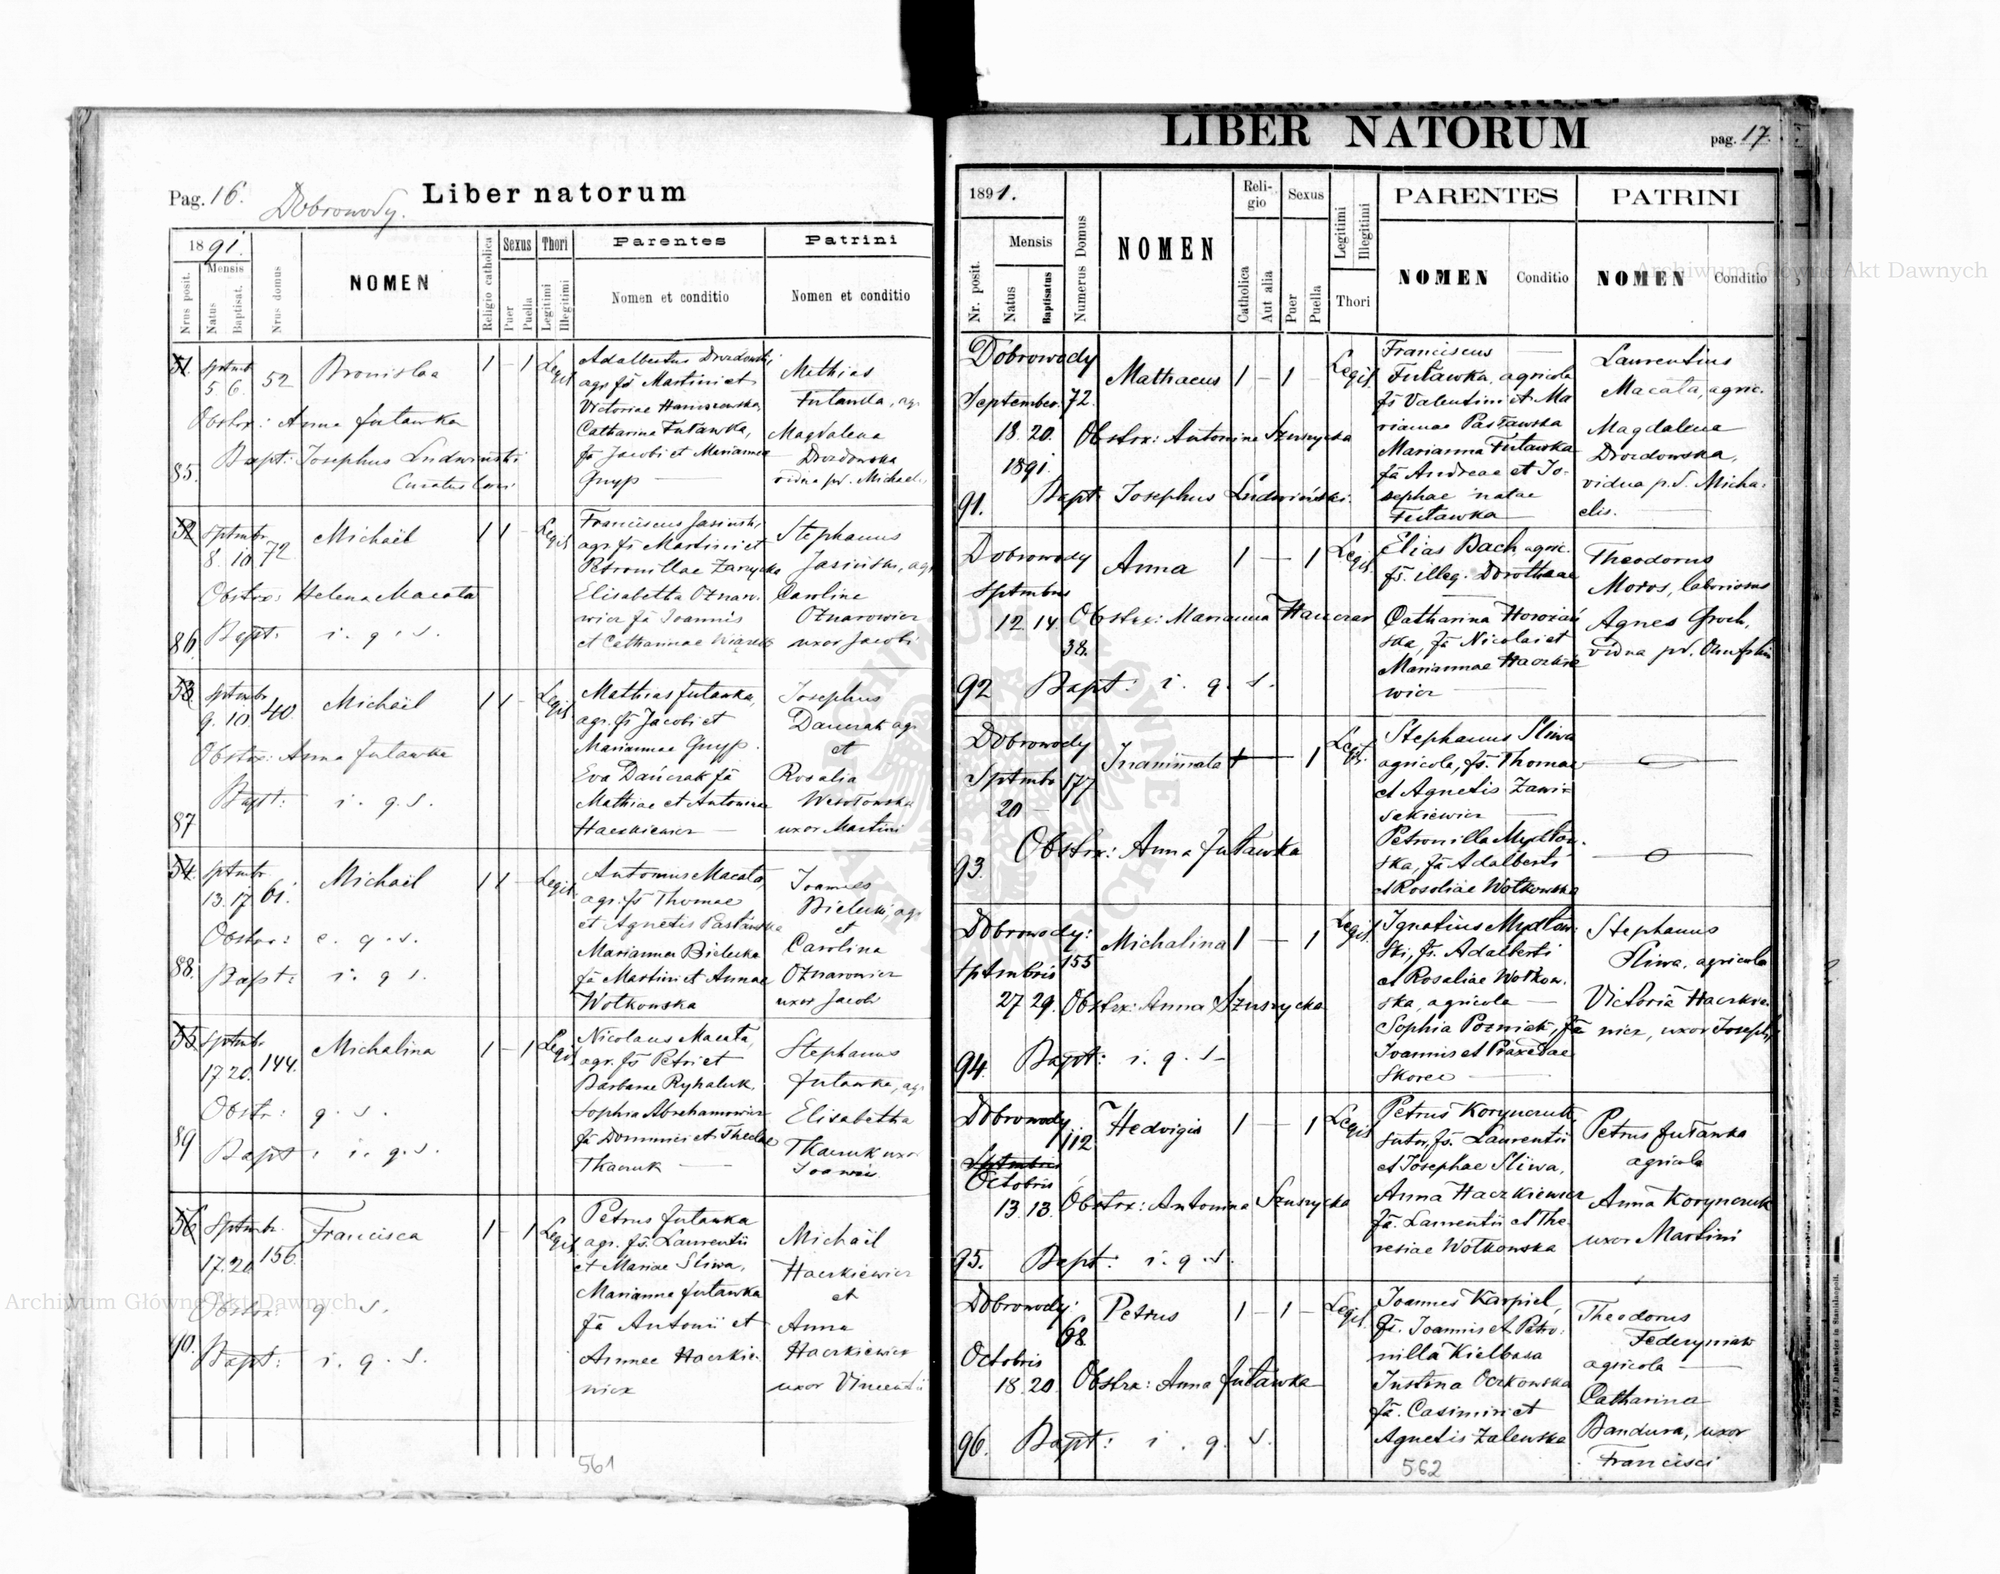 Pag. 16. Dobrowody. Liber natorum
1891.
Mensis
Nrus posit.
Natus
Baptisat.
Nrus domus
NOMEN
Religio catholica
Sexus
Puer
Puella
Thori
Legitimi
Illegitimi
Parentes
Nomen et conditio
Patrini
Nomen et conditio
51. Sptmb.
5. 6. 52 Bronislaa 1 - 1 Legit.
Obstrx: Anna Futawka
Bapt: Josephus Ludwiński
85. Curatus loci
Adalbertus Drozdowski,
agr. fs Martini et
Victoriae Haniszewska
Catharina Futawka,
fa Jacobi et Marianna
Gnyp
Mathias
Futawka, agr.
Magdalena
Drozdowska
vidua p. Michael.
52. Sptmbr.
8. 10 72 Michaël 1 1 - Legit.
Obstrx: Helena Macata
86 Bapt: i. q. s.
Franciscus Jasiński,
agr. fs Martini et
Petronillae Zarzycka
Elisabetha Oznaro-
wicz fa Joannis
et Catharinae
Stephanus
Jasiński, agr
Caroline
Oznarowicz
uxor Jacobi
53 Sptmbr.
9. 10. 40. Michaël 1 1 - Legit.
Obstrx: Anna Futawka
Bapt: i. q. s.
87
Mathias Futawka,
agr. fs Jacobi et
Mariannae Gnyp.
Eva Dańczak fa
Mathiae et Antoninae
Haczkiewicz
Josephus
Dańczak agr
et
Rosalia
Wesołowska
uxor Martini
54. Sptmbr.
13. 17 61. Michaël 1 1 - Legit.
Obstrx: e. q. s.
88. Bapt: i. q. s.
Antonius Macata,
agr. fs Thomae
et Agnetis Pastawska
Marianna Bielecka
fa Martini et Annae
Wotkowska
Joannes
Bielecki, agr
et
Carolina
Oznarowicz
uxor Jacobi
55 Sptmb.
17. 20. 144. Michalina 1 - 1 Legit.
Obstr: q. s.
89 Bapt: i. q. s.
Nicolaus Macata,
agr. fs Petri et
Barbarae Ryhaluk,
Sophia Abrahamowicz
fa Dominici et Theclae
Tkaczuk
Stephanus
Futawka, agr
Elisabetha
Tkaczuk uxor
Joannis
56 Sptmbr.
17. 20. 156. Francisca 1 - 1 Legit.
Obstrx: q. s.
90. Bapt: i. q. s.
Petrus Futawka
agr. fs. Laurentii
et Mariae Sliwa,
Marianna Futawka
fa Antonii et
Annae Haczkie-
wicz
Michaël
Haczkiewicz
et
Anna
Haczkiewicz
uxor Vincentii
561
LIBER NATORUM pag. 17.
1891.
Mensis
Nr. posit.
Natus
Baptisatus
Numerus Domus
NOMEN
Reli-
gio
Catholica
Aut alia
Sexus
Puer
Puella
Legitimi
Illegitimi
Thori
PARENTES
NOMEN Conditio
PATRINI
NOMEN Conditio
Dobrowody
September. 72. Mathaeus 1 - 1 - Legit.
18. 20. Obstrx: Antonina Szuszycka
1891.
91. Bapt Josephus Ludwiński.
Franciscus
Futawka, agricola
fs Valentini et Ma
riannae Pastawska
Marianna Futawka
fa Andreae et Jo-
sephae natae
Futawka
Laurentius
Macata, agric.
Magdalena
Drozdowska,
vidua p. d. Micha-
elis.
Dobrowody Anna 1 - 1 Legit.
Sptmbris
12. 14. Obstrx: Marianna Hanczar
38.
92 Bapt: i. q. s.
Elias Bach, agric.
fs. illeg. Dorotheae
Catharina
ska, fa Nicolai et
Mariannae Haczkie
wicz
Theodorus
Moros, laboriosus
Agnes Groch,
vidua p.
Dobrowody Inanimata + - 1 Legit.
Sptmbr. 177
20 -
93. Obstrx: Anna Futawka
Stephanus Sliwa
agricola, fs. Thomae
et Agnetis Zawi-
sakiewicz
Petronilla Mydlow-
ska, fa Adalberti
et Rosaliae Wotkowska
Dobrowody: Michalina 1 - 1 Legit.
Sptmbris 155
27 29. Obstrx: Anna Szuszycka
94. Bapt: i. q. s.
Ignatius Mydlow-
ski, fs. Adalberti
et Rosaliae Wotkow-
ska, agricola
Sophia Pozniak, fa
Joannis et Praxedae
Skorec
Stephanus
Sliwa, agricola
Victoria Haczkie-
wicz, uxor Josephi
Dobrowody 112. Hedvigis 1 - 1 Legit
Sptmbris
Octobris
13. 13. Obstrx: Antonina Szuszycka
95. Bapt: i. q. s.
Petrus Korynczuk,
sutor, fs. Laurentii
et Josephae Sliwa,
Anna Haczkiewicz
fa. Laurentii et The-
resiae Wotkowska
Petrus Futawka
agricola
Anna Korynczuk
uxor Martini
Dobrowody: 68. Petrus 1 - 1 - Legit.
Octobris
18. 20. Obstrx: Anna Futawka
96. Bapt: i. q. s.
Joannes Karpiel,
fs. Joannis et Petro-
nilla Kielbasa
Justina Oczkowska
fa. Casimiri et
Agnetis Zalewska
Theodorus
Federyniak
agricola
Catharina
Bandura, uxor
Francisci
562
Archiwum Główne Akt Dawnych
Archiwum Główne Akt Dawnych